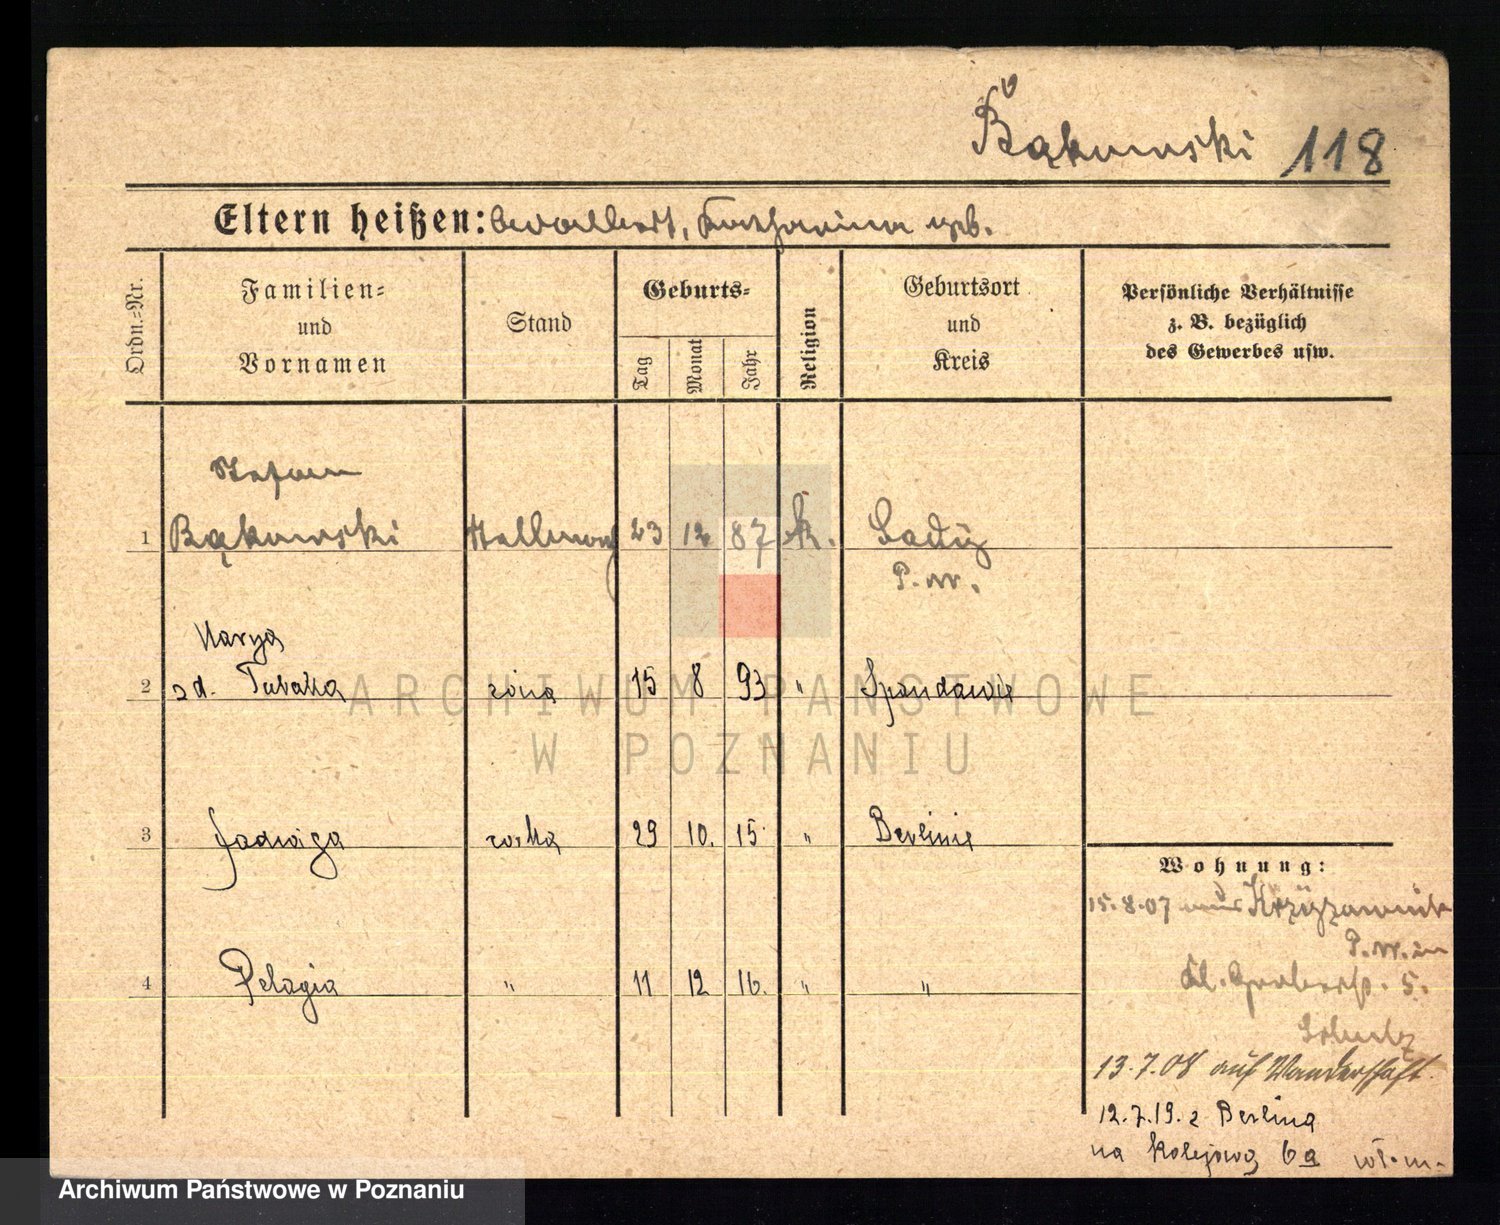 Bąkowski 118
Eltern heißen: Adalbert, Katharina geb.
Ordn.-Nr.
Familien-
und
Vornamen
Stand
Geburts-
Tag
Monat
Jahr
Religion
Geburtsort
und
Kreis
Persönliche Verhältnisse
z. B. bezüglich
des Gewerbes usw.
Stefan
1 Bąkowski 23 12 87 k.
P. W.
Marya
2 zd. żona 15 8 93 " Spandawie
3 Jadwiga córka 29 10. 15 " Berlinie
4 Pelagia " 11 12 16. " "
Wohnung:
15.8.07 aus Krzyżownik
P. W. in
5.
13.7.08 auf Wanderschaft.
12.7.19. z Berlina
na Kolejową 6a
ARCHIWUM PAŃSTWOWE
W POZNANIU
Archiwum Państwowe w Poznaniu